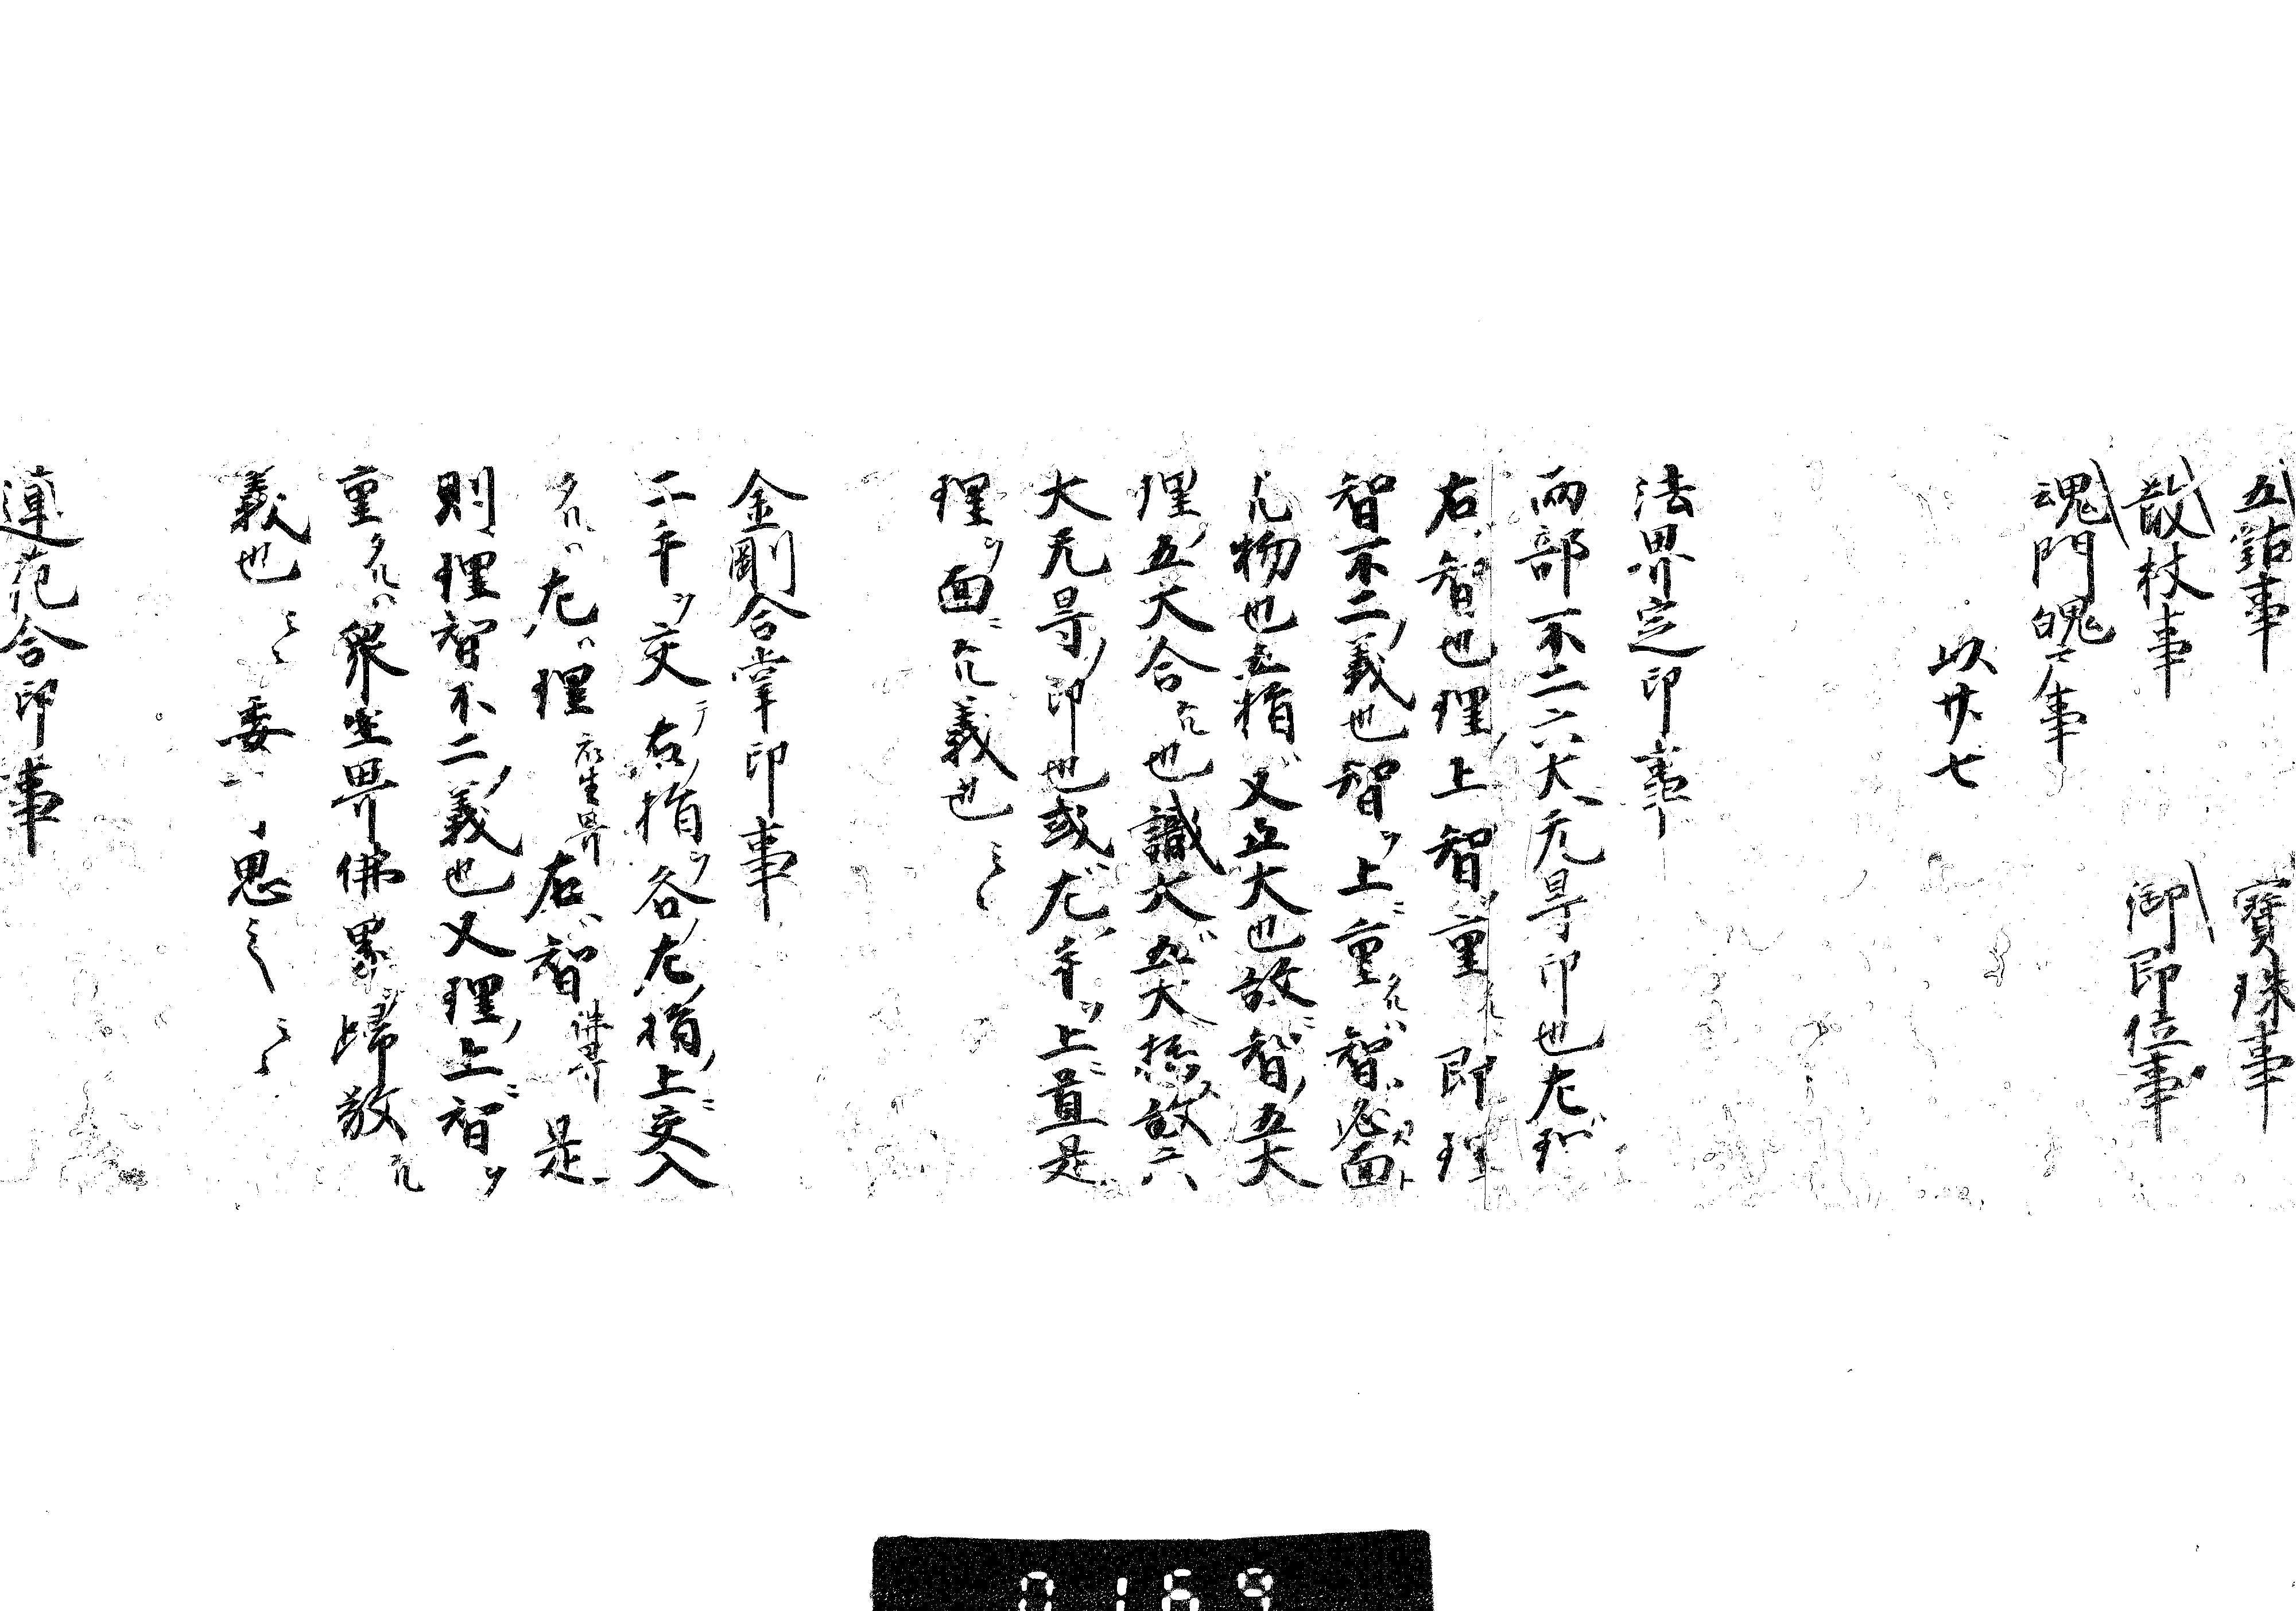 五鈷事　寶珠事
散杖事　御即位事
魂門魄戸事
以上廿七
法界定印事
兩部不二六大无㝵印也左ハ理
右ハ智也理ノ上智ヲ重タル即理
智不二ノ義也智ヲ上ニ重タルハ智ハ必面ト
物也五指ハ又五大也故ニ智ノ五大
理ノ五大合タル也識大ハ五大括ス故ニ六
大无㝵ノ印也或ハ左ノ手ヲ上ニ置是ハ
理ヲ面ニ義也云々
金剛合掌印事
二手ヲ交テ右指ヲ各左ノ指ノ上ニ交入
タルハ左ハ理衆生界右ハ智佛界是
則理智不二ノ義也又理ノ上ニ智ヲ
重タルハ衆生界佛界歸敬
義也云々委ニ思云々
蓮花合印事
0169